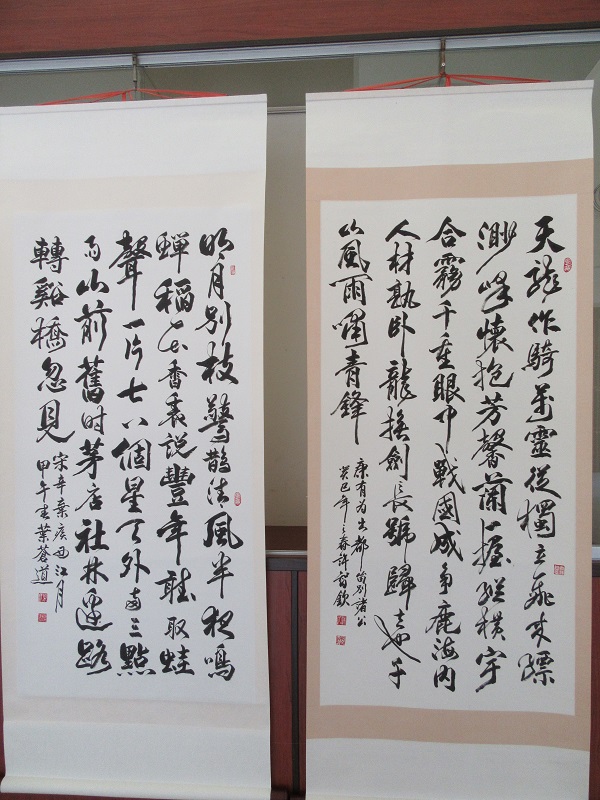 天龍作騎萬靈從獨立飛來縹
渺峰懷抱芳馨蘭一握縱橫宇
合霧千重眼中戰國成爭鹿海內
人材孰臥龍撫劍長號歸去也千
山風雨嘯青鋒
康有為出都留別諸公
癸巳年之春許欽
明月別枝驚鵲清風半夜鳴
蟬稻花香裏說豐年聽取蛙
聲一片七八個星天外兩三點
雨山前舊時茅店社林邊路
轉谿橋忽見
宋辛棄疾西江月
甲午春葉蒼道